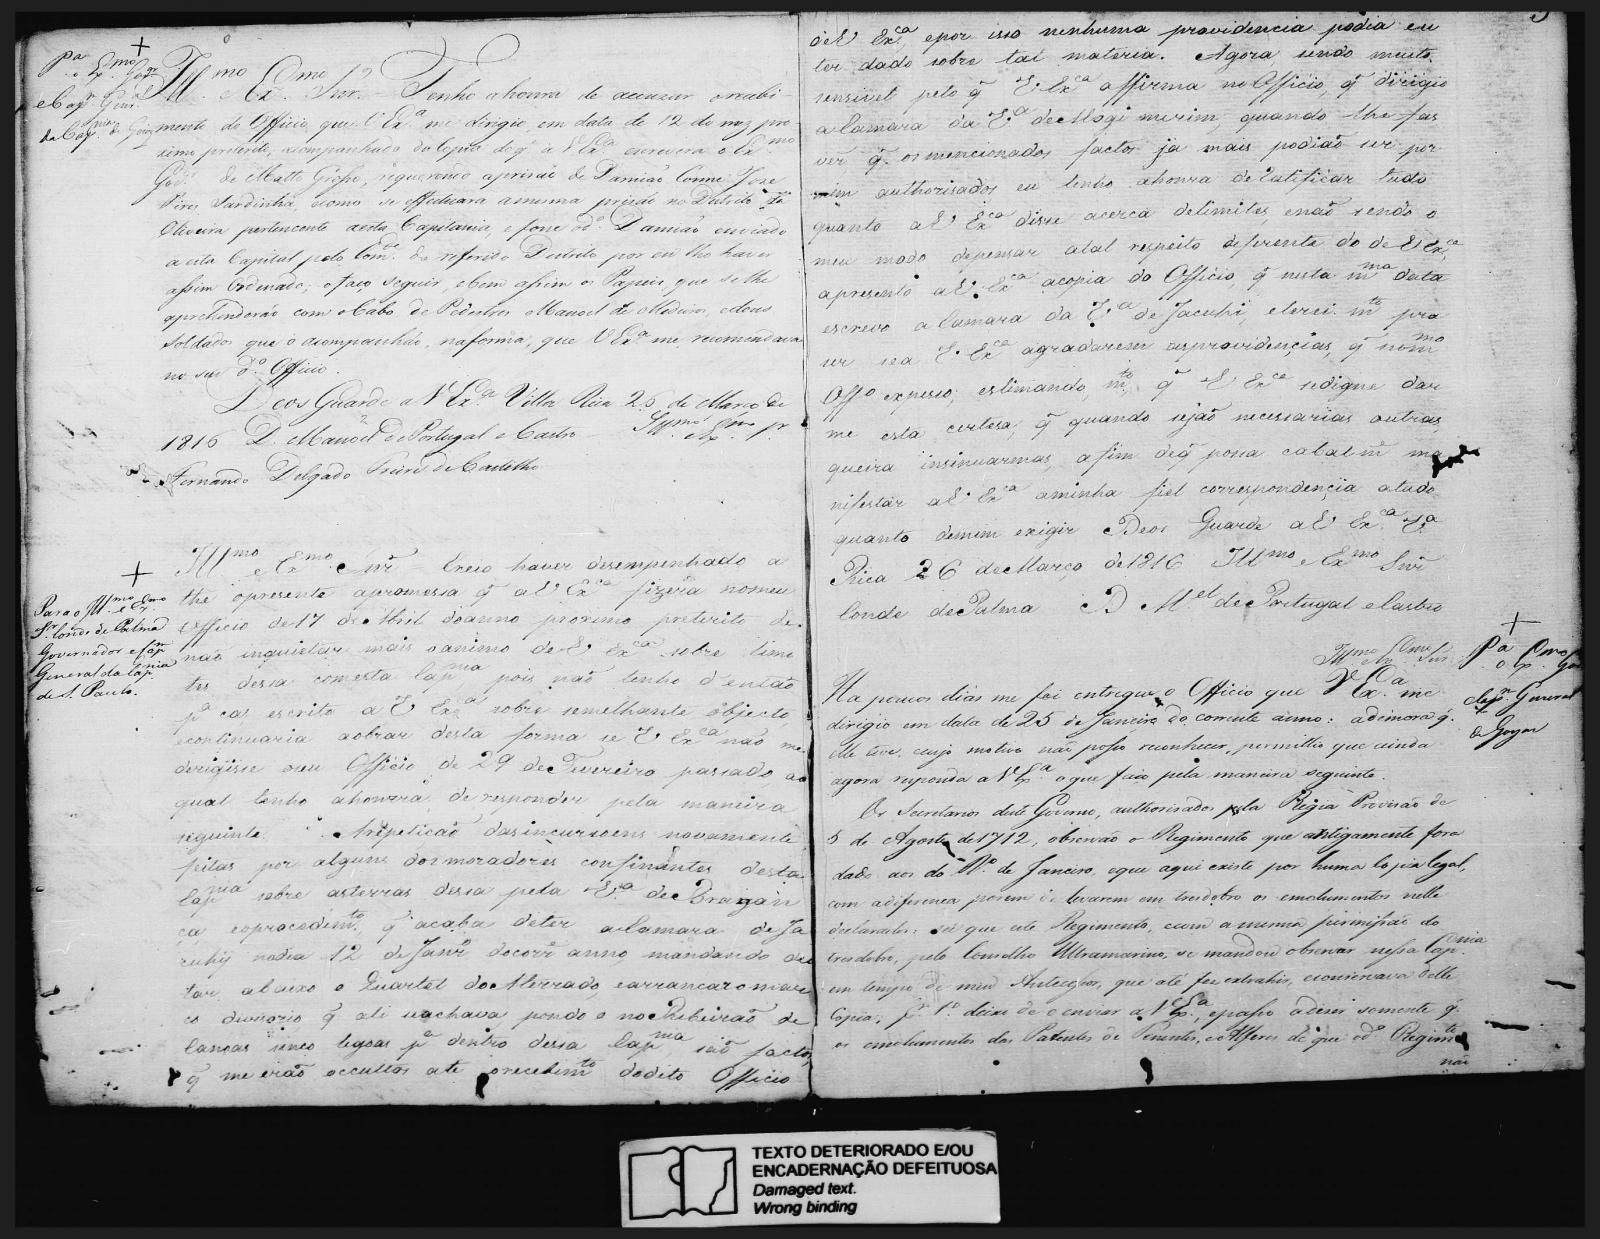 Pª o Exmo Govr
e Capm Genl
da Capnia de Goyaz
Illmo e Exmo Snr. – Tenho ahonra de accuzar orecebi-
mento do Officio, que V Exª me dirigio em data de 12 do mez pro
ximo preterito, acompanhado da Copia do q' a V Exª escrevera o Exmo
Govr de Matto Grosso, requerendo aprizão de Damião Jose
Pires Sardinha, como se effectuara amesma prizão no Destrito
Oliveira pertencente aesta Capitania, e fosse od.º Damião enviado
aesta Capital pelo Comde do referido Destrito por eu lho haver
assim Ordenado; ofaço seguir, ebem assim os Papeis, que selhe
aprehenderão com oCabo de Pedestres Manoel de Medeiros, edous
Soldados que o acompanhão, naforma, que V Exª me recomendava
no seu d.º Officio.
Deos Guarde a V Exª Villa Rica 25 de Março de
1816 D. Manoel de Portugal e Castro – Illmo e Exmo Sr
Fernando Delgado Freire de Castilho
Para o Illmo e Exmo
Sr Conde de Palma
Governador e Capm
General da Capnia
de S. Paulo.
Illmo e Exmo Snr – Creio haver desempenhado a
thé opresente apromessa q' aV Exca fizera nomeu
Officio de 17 de Abril doanno proximo preterito de
não inquietar mais oanimo de V Exca sobre limi
tes dessa comesta Capnia pois não tenho d'então
pª cá escrito a V Exca sobre semelhante objecto,
econtinuaria aobrar desta forma se V Exca não me
derigisse oseu Officio de 29 de Fevereiro passado, ao
qual tenho ahonrra de responder pela maneira
seguinte. Arepetição dasincursoens novamente
feitas por alguns dosmoradores confinantes desta
Capnia sobre asterras dessa pela Vª de Bragan
ça eoprocedimto, q' acaba deter aCamara de Ja
cuhy nodia 12 de Janro docorre anno, mandando dei
tar abaixo o Quartel do Aterrado, earrancaromar
co devisorio q' ali seachava pondo o noRibeirão de
Canoas sinco legoas pª dentro dessa Capnia são factos,
q' me erão occultos até orecebimto dodito Officio
deV Exca, epor isso nenhuma providencia podia eu
ter dado sobre tal materia. Agora sendo muito
sensivel pelo q' V. Exca affirma no Officio, q' dirigio
aCamara da Vª de Mogi merim, quando lhe fas
ver q' os mencionados factos ja mais podião ser por
mim authorisados eu tenho ahonra de ratificar tudo
quanto aV Exca disse acerca delimites, enão sendo o
meu modo depensar atal respeito diferente do de V Exca,
apresento aV. Exca acopia do Officio, q' nesta mma data
escrevo aCamara da Vª de Jacuhi, eterei mto pra
ser sea V. Exca agradarem asprovidencias, q' nomo
Offo expesso; estimando, mto, q' V Exca sedigne dar
me esta certesa, q' quando sejão necessarias outras,
queira insinuarmas, afim deq' possa cabalmte ma
nifestar aV. Exca aminha fiel correspondencia atudo
quanto demim exigir Deos Guarde aV Exca Vª
Rica 26 de Março de 1816 Illmo e Exmo Snr
Conde de Palma D Mel de Portugal e Castro
Pª o Exmo Gor
e Capm General
de Goyaz
Illmo e Exmo Snr
Ha poucos dias me foi entregue o Officio que V Exª me
dirigio em data de 25 de Janeiro do corrente anno: ademora q'
elle teve, cujo motivo não posso reconhecer, permittio que ainda
agora responda a V Exª o que faço pela maneira seguinte.
Os Secretarios deste Governo, authorisados pela Regia Provisão de
5 de Agosto de 1712, observão o Regimento que antigamente fora
dado aos do Rº de Janeiro, eque aqui existe por huma Copia legal,
com adiferença porem de levarem em tresdobro os emolumentos nelle
declarados: sei que este Regimento, com a mesma permissão do
tresdobro, pelo Conselho Ultramarino, se mandou observar nessa Capnia
em tempo de meu Antecessor, que até fez extrahir, econservava delle
Copia, pr isso deixo de o enviar a V Exª, epasso adizer somente q'
os emolumentos das Patentes de Tenentes, e Alferes de que od.º Regimto
não
TEXTO DETERIORADO E/OU
ENCADERNAÇÃO DEFEITUOSA
Damaged text.
Wrong binding